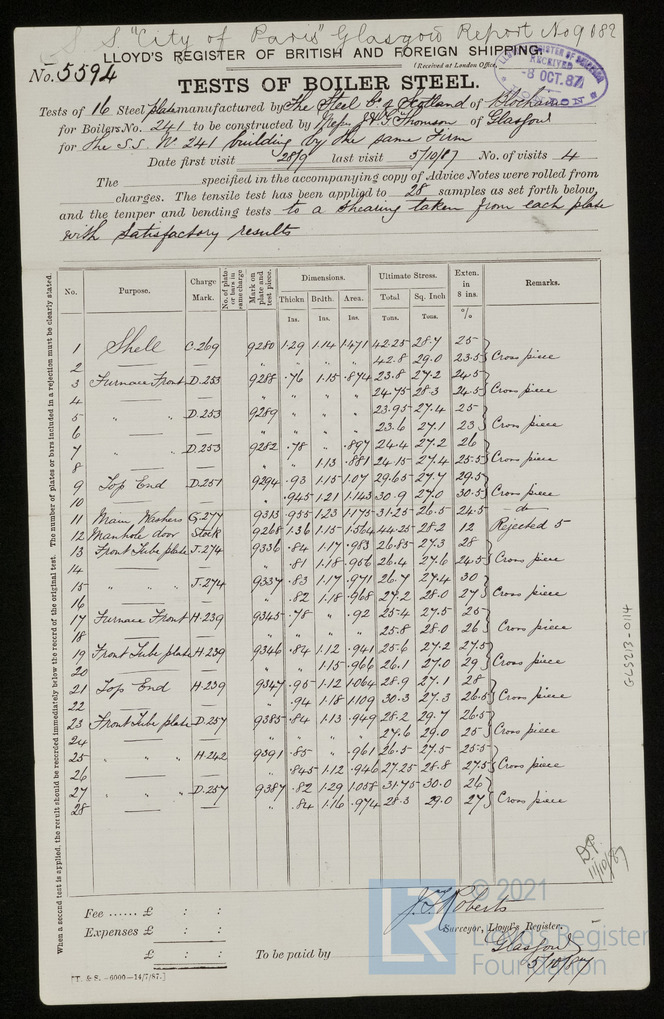 S. S. "City of Paris" Glasgow Report No 9182
LLOYD'S REGISTER OF BRITISH AND FOREIGN SHIPPING.
(Received at London Office
LLOYD'S REGISTER OF
RECEIVED
8 OCT.87
LONDON
No. 5594
TESTS OF BOILER STEEL.
Tests of 16 Steel plate manufactured by The Steel Co of Scotland of Blochairn
for Boilers No. 241 to be constructed by Messrs J. & G. Thomson of Glasgow
for The S.S. No 241 building by the same Firm
Date first visit 28/9 last visit 5/10/87 No. of visits 4
The specified in the accompanying copy of Advice Notes were rolled from
charges. The tensile test has been applied to 28 samples as set forth below,
and the temper and bending tests to a shearing taken from each plate
with satisfactory results
No. Purpose. Charge Mark. No. of plates or bars in same charge Mark on plate and test piece. Dimensions. Ultimate Stress. Exten. in 8 ins. Remarks.
Thickn Brdth. Area. Total Sq. Inch
Ins. Ins. Ins. Tons. Tons. %
1 Shell C.269 9280 1.29 1.14 1.471 42.25 28.7 25
2 — — " " " " 42.8 29.0 23.5 } Cross piece
3 Furnace Front D.253 9288 .76 1.15 .874 23.8 27.2 24.5
4 — — " " " " 24.75 28.3 24.5 } Cross piece
5 " " D.253 9289 " " " 23.95 27.4 25
6 — — " " " " 23.6 27.1 23 } Cross piece
7 " " D.253 9282 .78 " .897 24.4 27.2 26
8 — — " " 1.13 .881 24.15 27.4 25.5 } Cross piece
9 Top End D.251 9294 .93 1.15 1.07 29.65 27.7 29.5
10 — — " .945 1.21 1.143 30.9 27.0 30.5 } Cross piece
11 Main Washers G.277 9313 .955 1.23 1.175 31.25 26.5 24.5 — do —
12 Manhole door Stock 9268 1.36 1.15 1.564 44.25 28.2 12 Rejected 5
13 Front Tube plate J.274 9336 .84 1.17 .983 26.85 27.3 28
14 — — " .81 1.18 .956 26.4 27.6 24.5 } Cross piece
15 " " J.274 9337 .83 1.17 .971 26.7 27.4 30
16 — — " .82 1.18 .968 27.2 28.0 27 } Cross piece
17 Furnace Front H.239 9345 .78 " .92 25.4 27.5 25
18 — — " " " " 25.8 28.0 26 } Cross piece
19 Front Tube plate H.239 9346 .84 1.12 .941 25.6 27.2 27.5
20 — — " " 1.15 .966 26.1 27.0 29 } Cross piece
21 Top End H.239 9347 .95 1.12 1.064 28.9 27.1 28
22 — — " .94 1.18 1.109 30.3 27.3 26.5 } Cross piece
23 Front Tube plate D.257 9385 .84 1.13 .949 28.2 29.7 26.5
24 — — " " " " 27.6 29.0 25 } Cross piece
25 " " " H.242 9391 .85 " .961 26.5 27.5 25.5
26 — — " .845 1.12 .946 27.25 28.8 27.5 } Cross piece
27 " " " D.257 9387 .82 1.29 1.058 31.75 30.0 26
28 — — " .84 1.16 .974 28.3 29.0 27 } Cross piece
When a second test is applied, the result should be recorded immediately below the record of the original test. The number of plates or bars included in a rejection must be clearly stated.
GLS213-0114
11/10/87
Fee ...... £ : :
Expenses £ : :
£ : :
To be paid by
J. T. Roberts
Surveyor, Lloyd's Register.
Glasgow
5/10/87
[T. & S. -6000-14/7/87.]
© 2021
LR
Lloyd's Register
Foundation